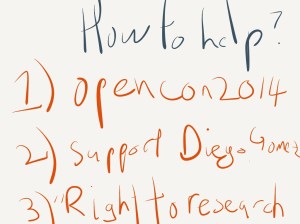 How to help?
1) opencon2014
2) Support Diego Gomez
3) "Right to research